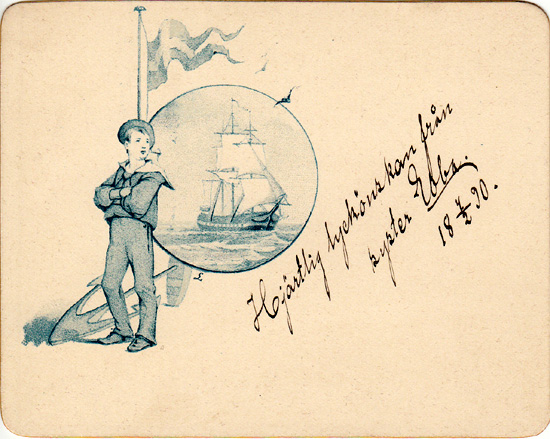 Hjärtlig lyckönskan från
syster Ebba.
18 4/2 90.
L